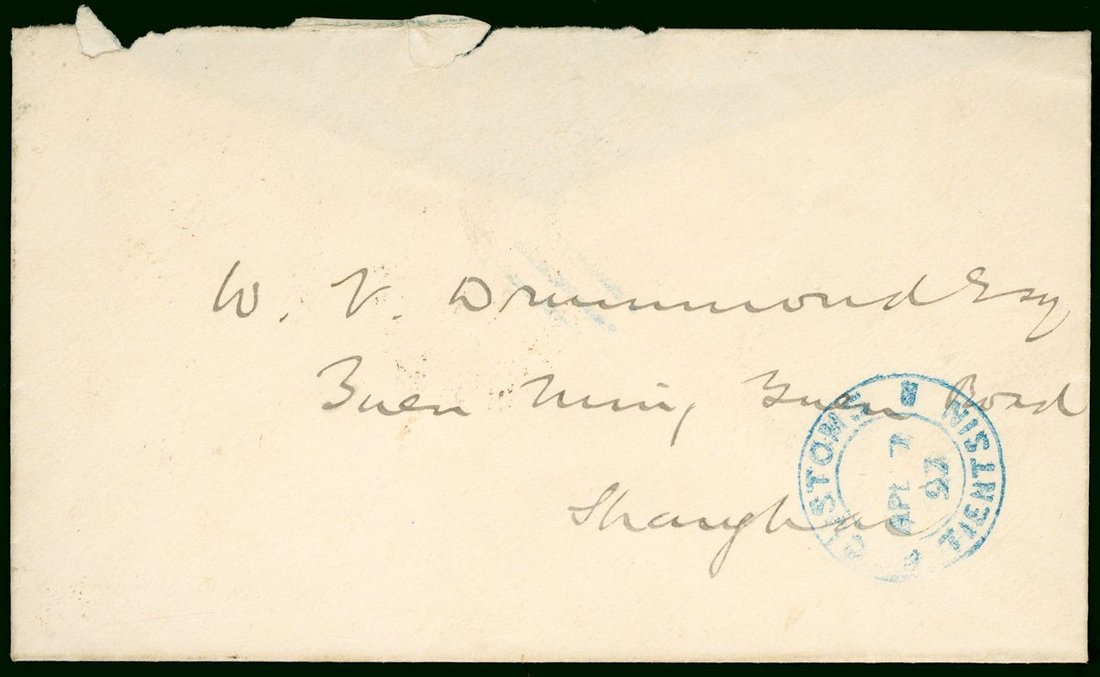 W. V. Drummond Esq
Yuen Ming Yuen Road
Shanghai
CUSTOMS
TIENTSIN
APL 7
97